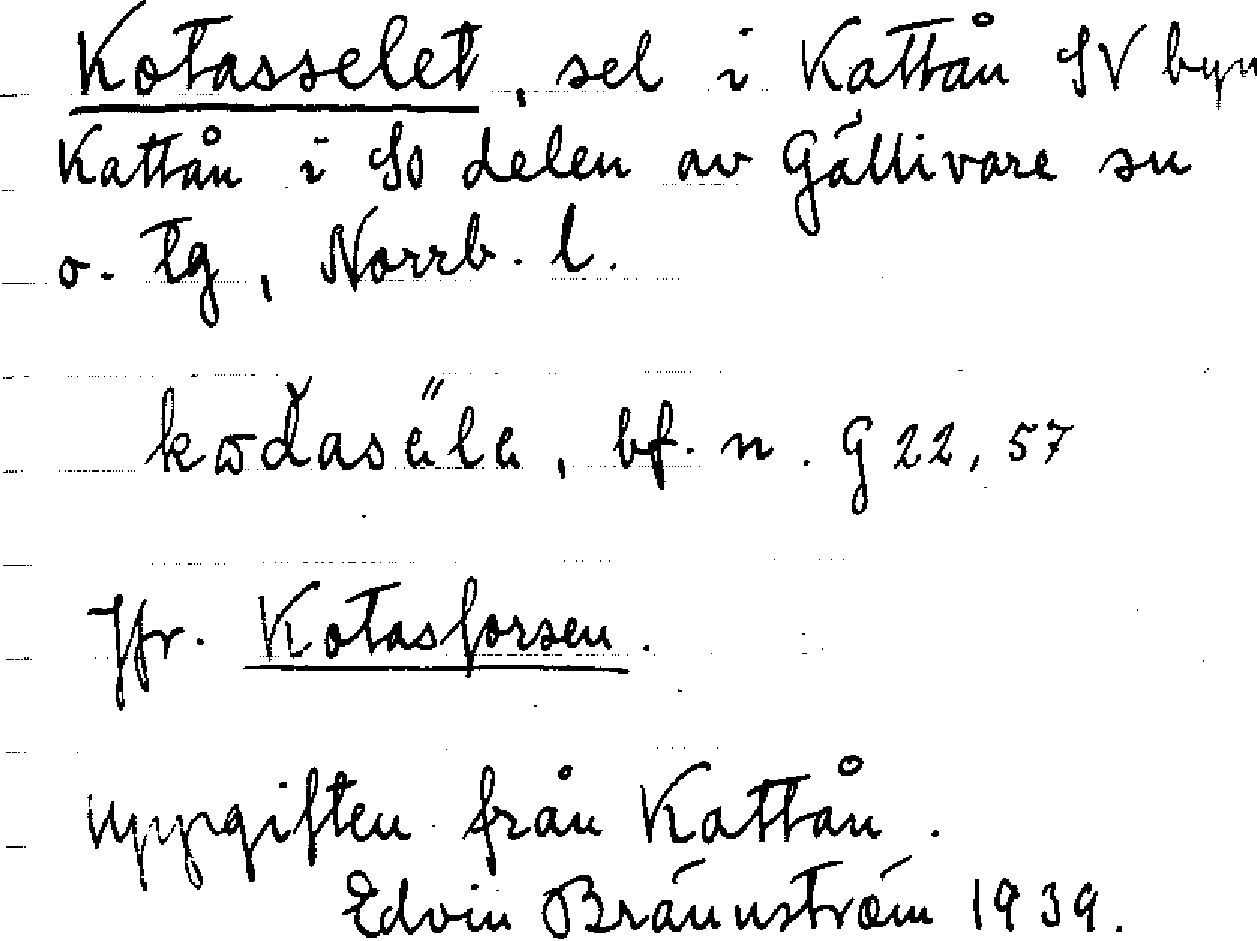 Kotasselet, sel i Kattån SV byn
Kattån i SO delen av Gällivare sn
o. tg, Norrb. l.
bf. n. G 22, 57
Jfr. Kotasforsen.
Uppgiften från Kattån.
Edvin Brännström 1939.